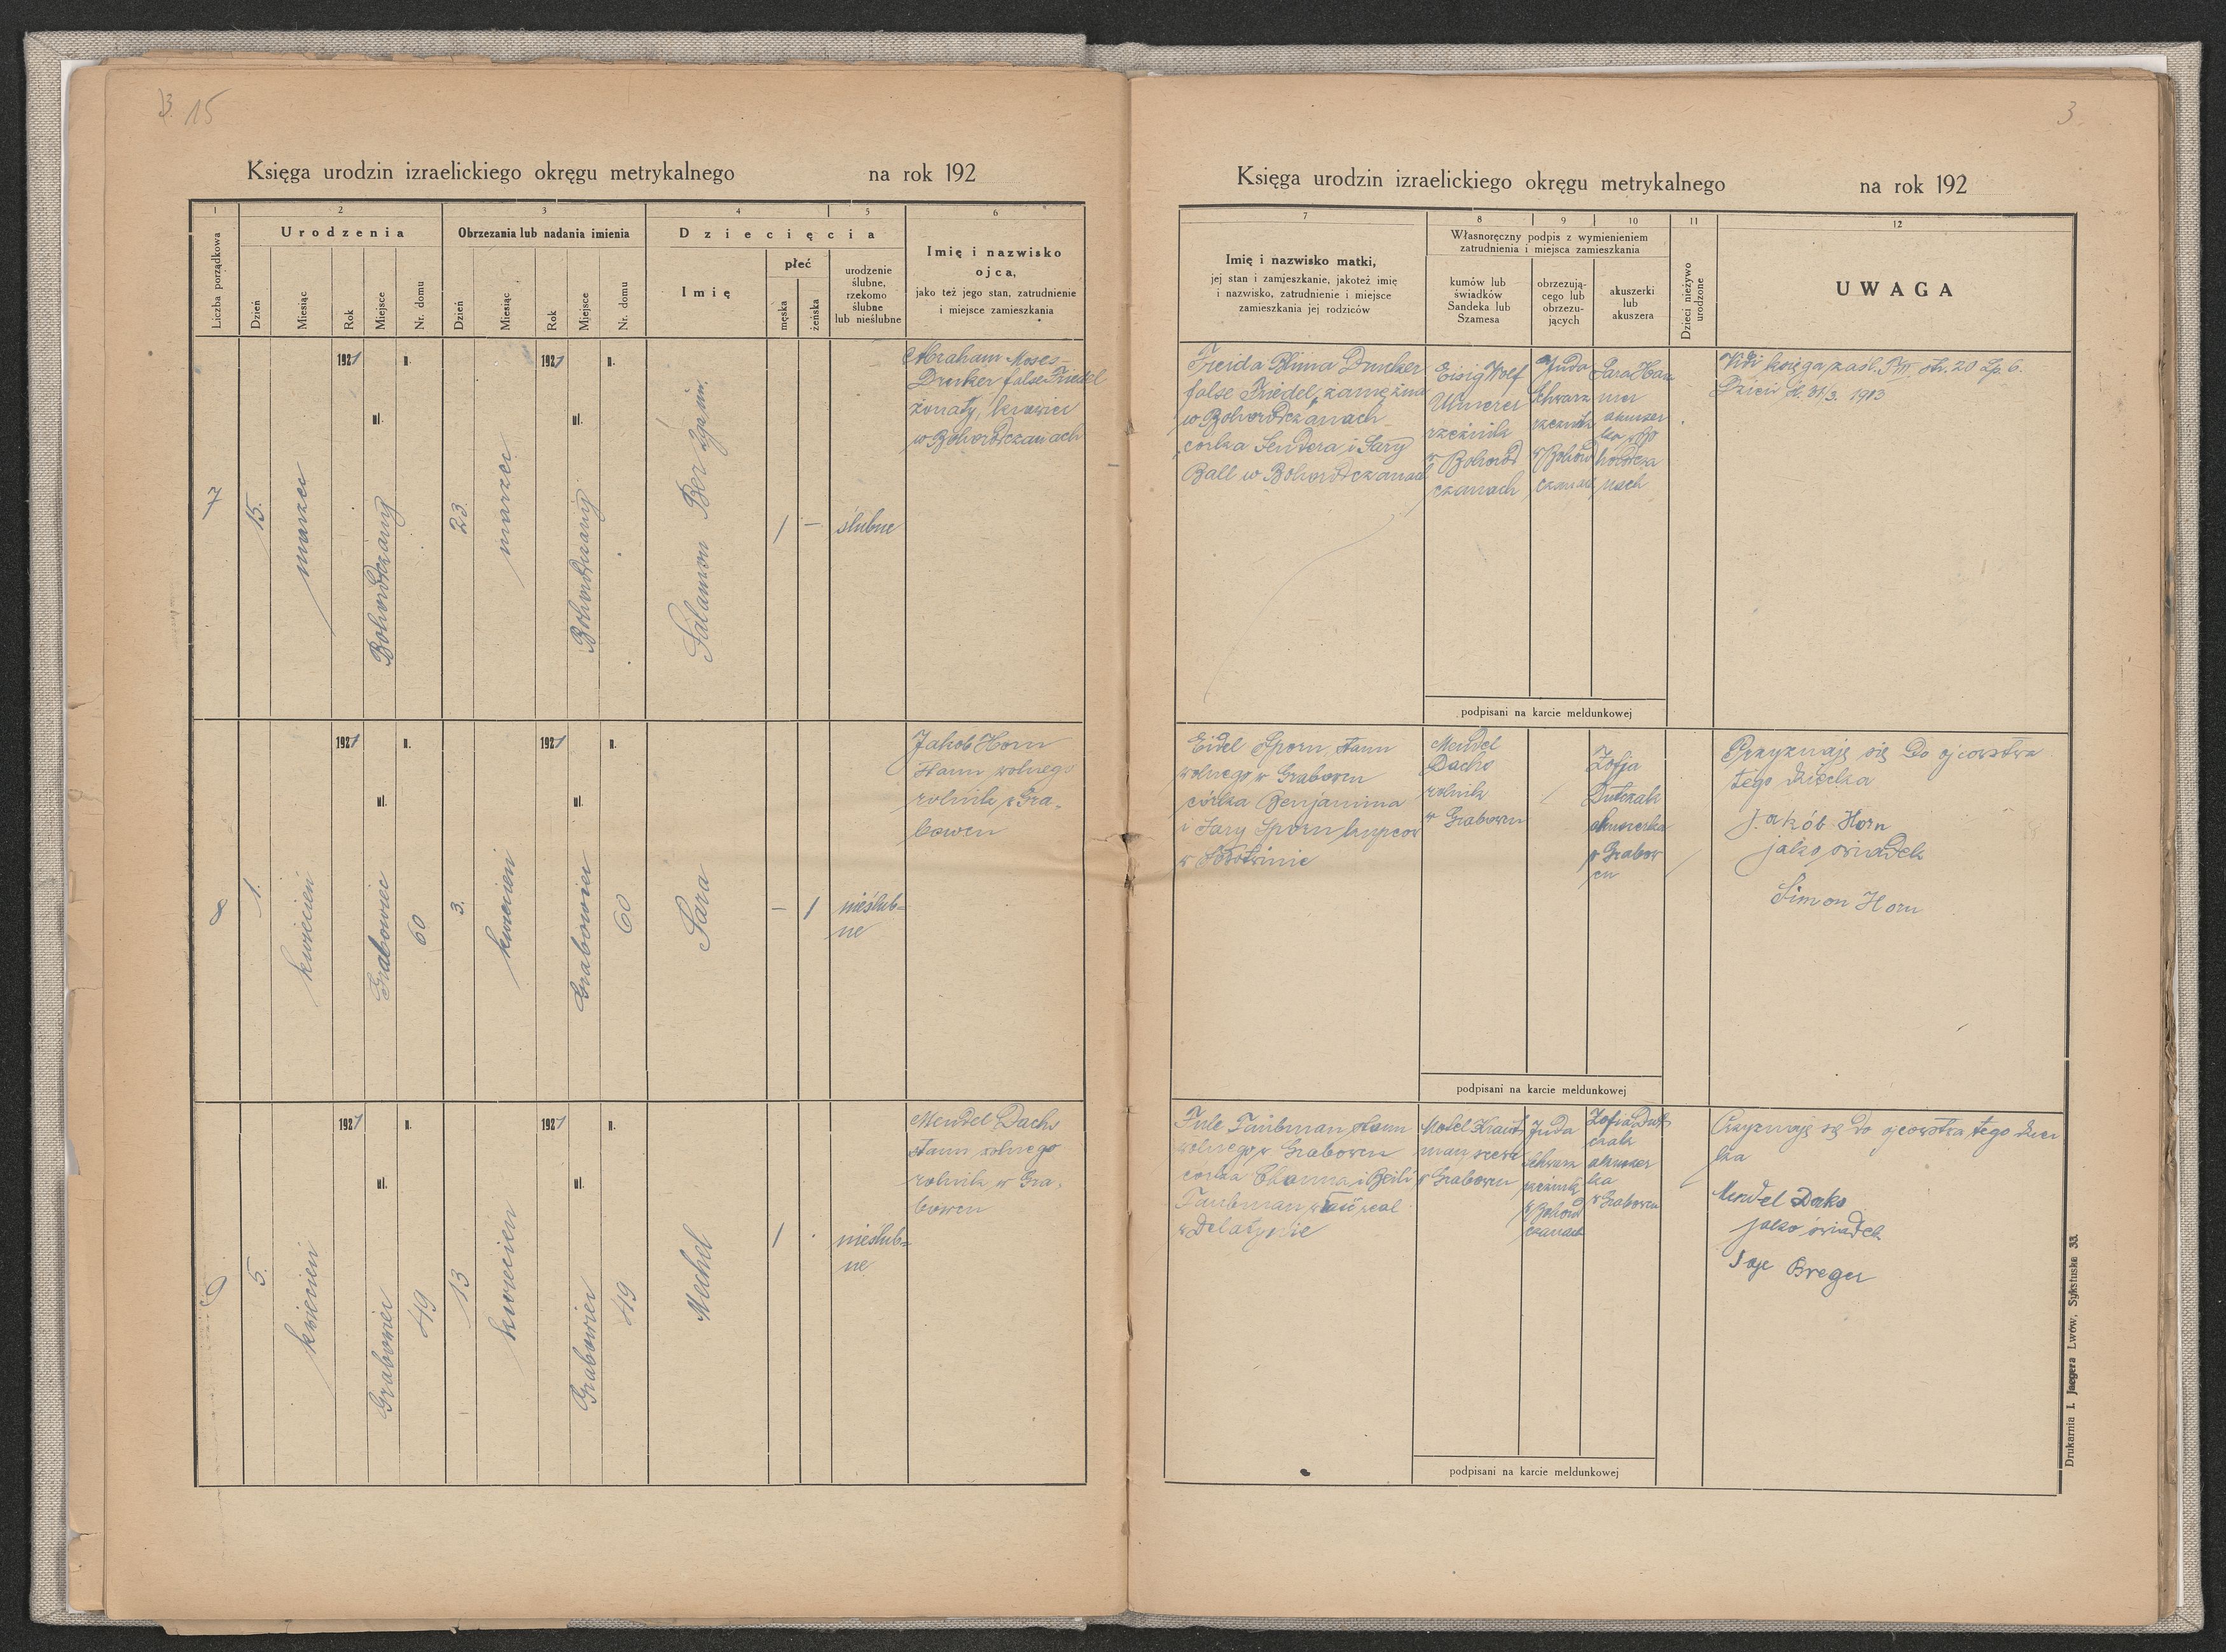 15
Księga urodzin izraelickiego okręgu metrykalnego na rok 192
1 2 3 4 5 6
Liczba porządkowa
Urodzenia
Obrzezania lub nadania imienia
Dziecięcia
Imię i nazwisko
ojca,
jako też jego stan, zatrudnienie
i miejsce zamieszkania
Dzień Miesiąc Rok Miejsce Nr. domu
Dzień Miesiąc Rok Miejsce Nr. domu
Imię
płeć
męska żeńska
urodzenie
ślubne,
rzekomo
ślubne
lub nieślubne
7
15.
marzec
1921
ul.
n.
Bohorodczany
23.
marzec
1921
ul.
n.
Bohorodczany
Salamon Ber
1 —
ślubne
Abraham Moses
Drucker false Friedel
żonaty, krawiec
w Bohorodczanach
8
1.
kwiecień
1921
ul.
n.
Grabowiec
60
3.
kwiecień
1921
ul.
n.
Grabowiec
60
Sara
— 1
nieślub=
ne
Jakob Horn
stanu wolnego
rolnik w Gra-
bowcu
9
5.
kwiecień
1921
ul.
n.
Grabowiec
49
13
kwiecień
1921
ul.
n.
Grabowiec
49
Mechel
1
nieślub=
ne
Mendel Dachs
stanu wolnego
rolnik w Gra-
bowcu
3.
Księga urodzin izraelickiego okręgu metrykalnego na rok 192
7 8 9 10 11 12
Imię i nazwisko matki,
jej stan i zamieszkanie, jakoteż imię
i nazwisko, zatrudnienie i miejsce
zamieszkania jej rodziców
Własnoręczny podpis z wymienieniem
zatrudnienia i miejsca zamieszkania
kumów lub
świadków
Sandeka lub
Szamesa
obrzezują-
cego lub
obrzezu-
jących
akuszerki
lub
akuszera
Dzieci nieżywo
urodzone
UWAGA
Freida Blima Drucker
false Friedel, zamężna
w Bohorodczanach
córka Sendera i Sary
Ball w Bohorodczanach
Eisig Wolf
rzeźnik
w Bohorod
czanach
Juda
Schwarz
rzeźnik
w Bohorod
czanach
Sara Ham
mer
akuszer
ka w Bo
horodcza
nach
Vidi księga zaśl. T. III. str. 20 Lp. 6.
31/3. 1913
podpisani na karcie meldunkowej
Eidel Sporn, stanu
wolnego w Grabowcu
córka Benjamina
i Sary Sporn kupców
w Sołotwinie
Mendel
Dachs
rolnik
w Grabowcu
Zofja
Dutczak
akuszerka
w Grabow
cu
Przyznaję się do ojcowstwa
tego dziecka
Jakób Horn
jako świadek
Simon Horn
podpisani na karcie meldunkowej
Taubman stanu
wolnego w Grabowcu
córka Chamma i Beili
Taubman
w Delatynie
w Grabowcu
Juda
Schwarz
rzeźnik
w Bohorod
czanach
Zofia Dut
czak
akuszer
ka
w Grabowcu
Przyznaję się do ojcowstwa tego dziec
ka
Mendel Daks
jako świadek
Breger
podpisani na karcie meldunkowej
Drukarnia I. Jaegera Lwów, Sykstuska 33.